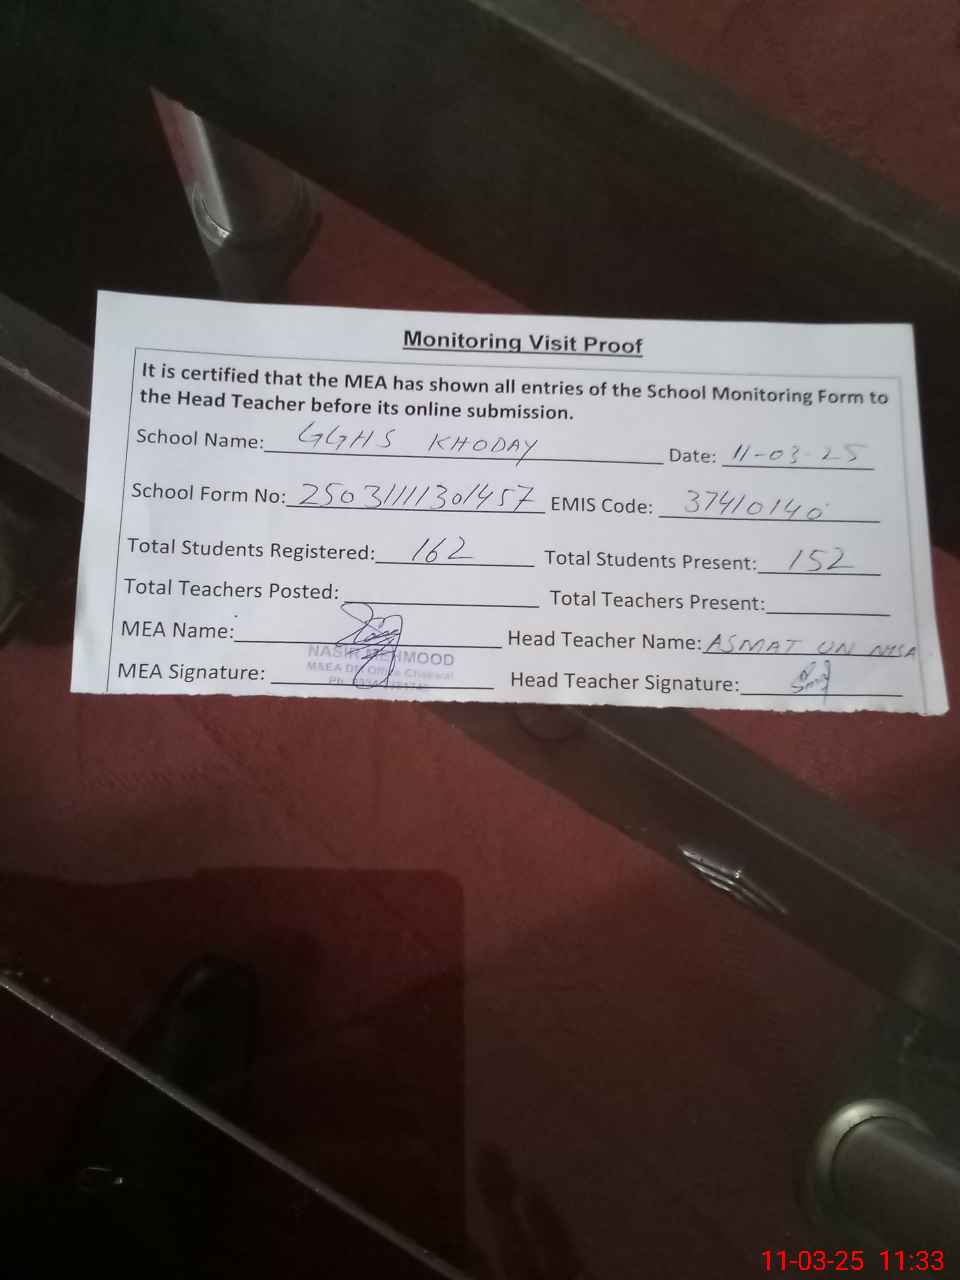 Monitoring Visit Proof
It is certified that the MEA has shown all entries of the School Monitoring Form to
the Head Teacher before its online submission.
School Name: GGHS KHODAY Date: 11-03-25
School Form No: 2503111301457 EMIS Code: 37410140
Total Students Registered: 162 Total Students Present: 152
Total Teachers Posted: Total Teachers Present:
MEA Name: Head Teacher Name: ASMAT UN NISA
NASIR MEHMOOD
M&EA Office Chakwal
MEA Signature: Head Teacher Signature:
Ph:
11-03-25 11:33